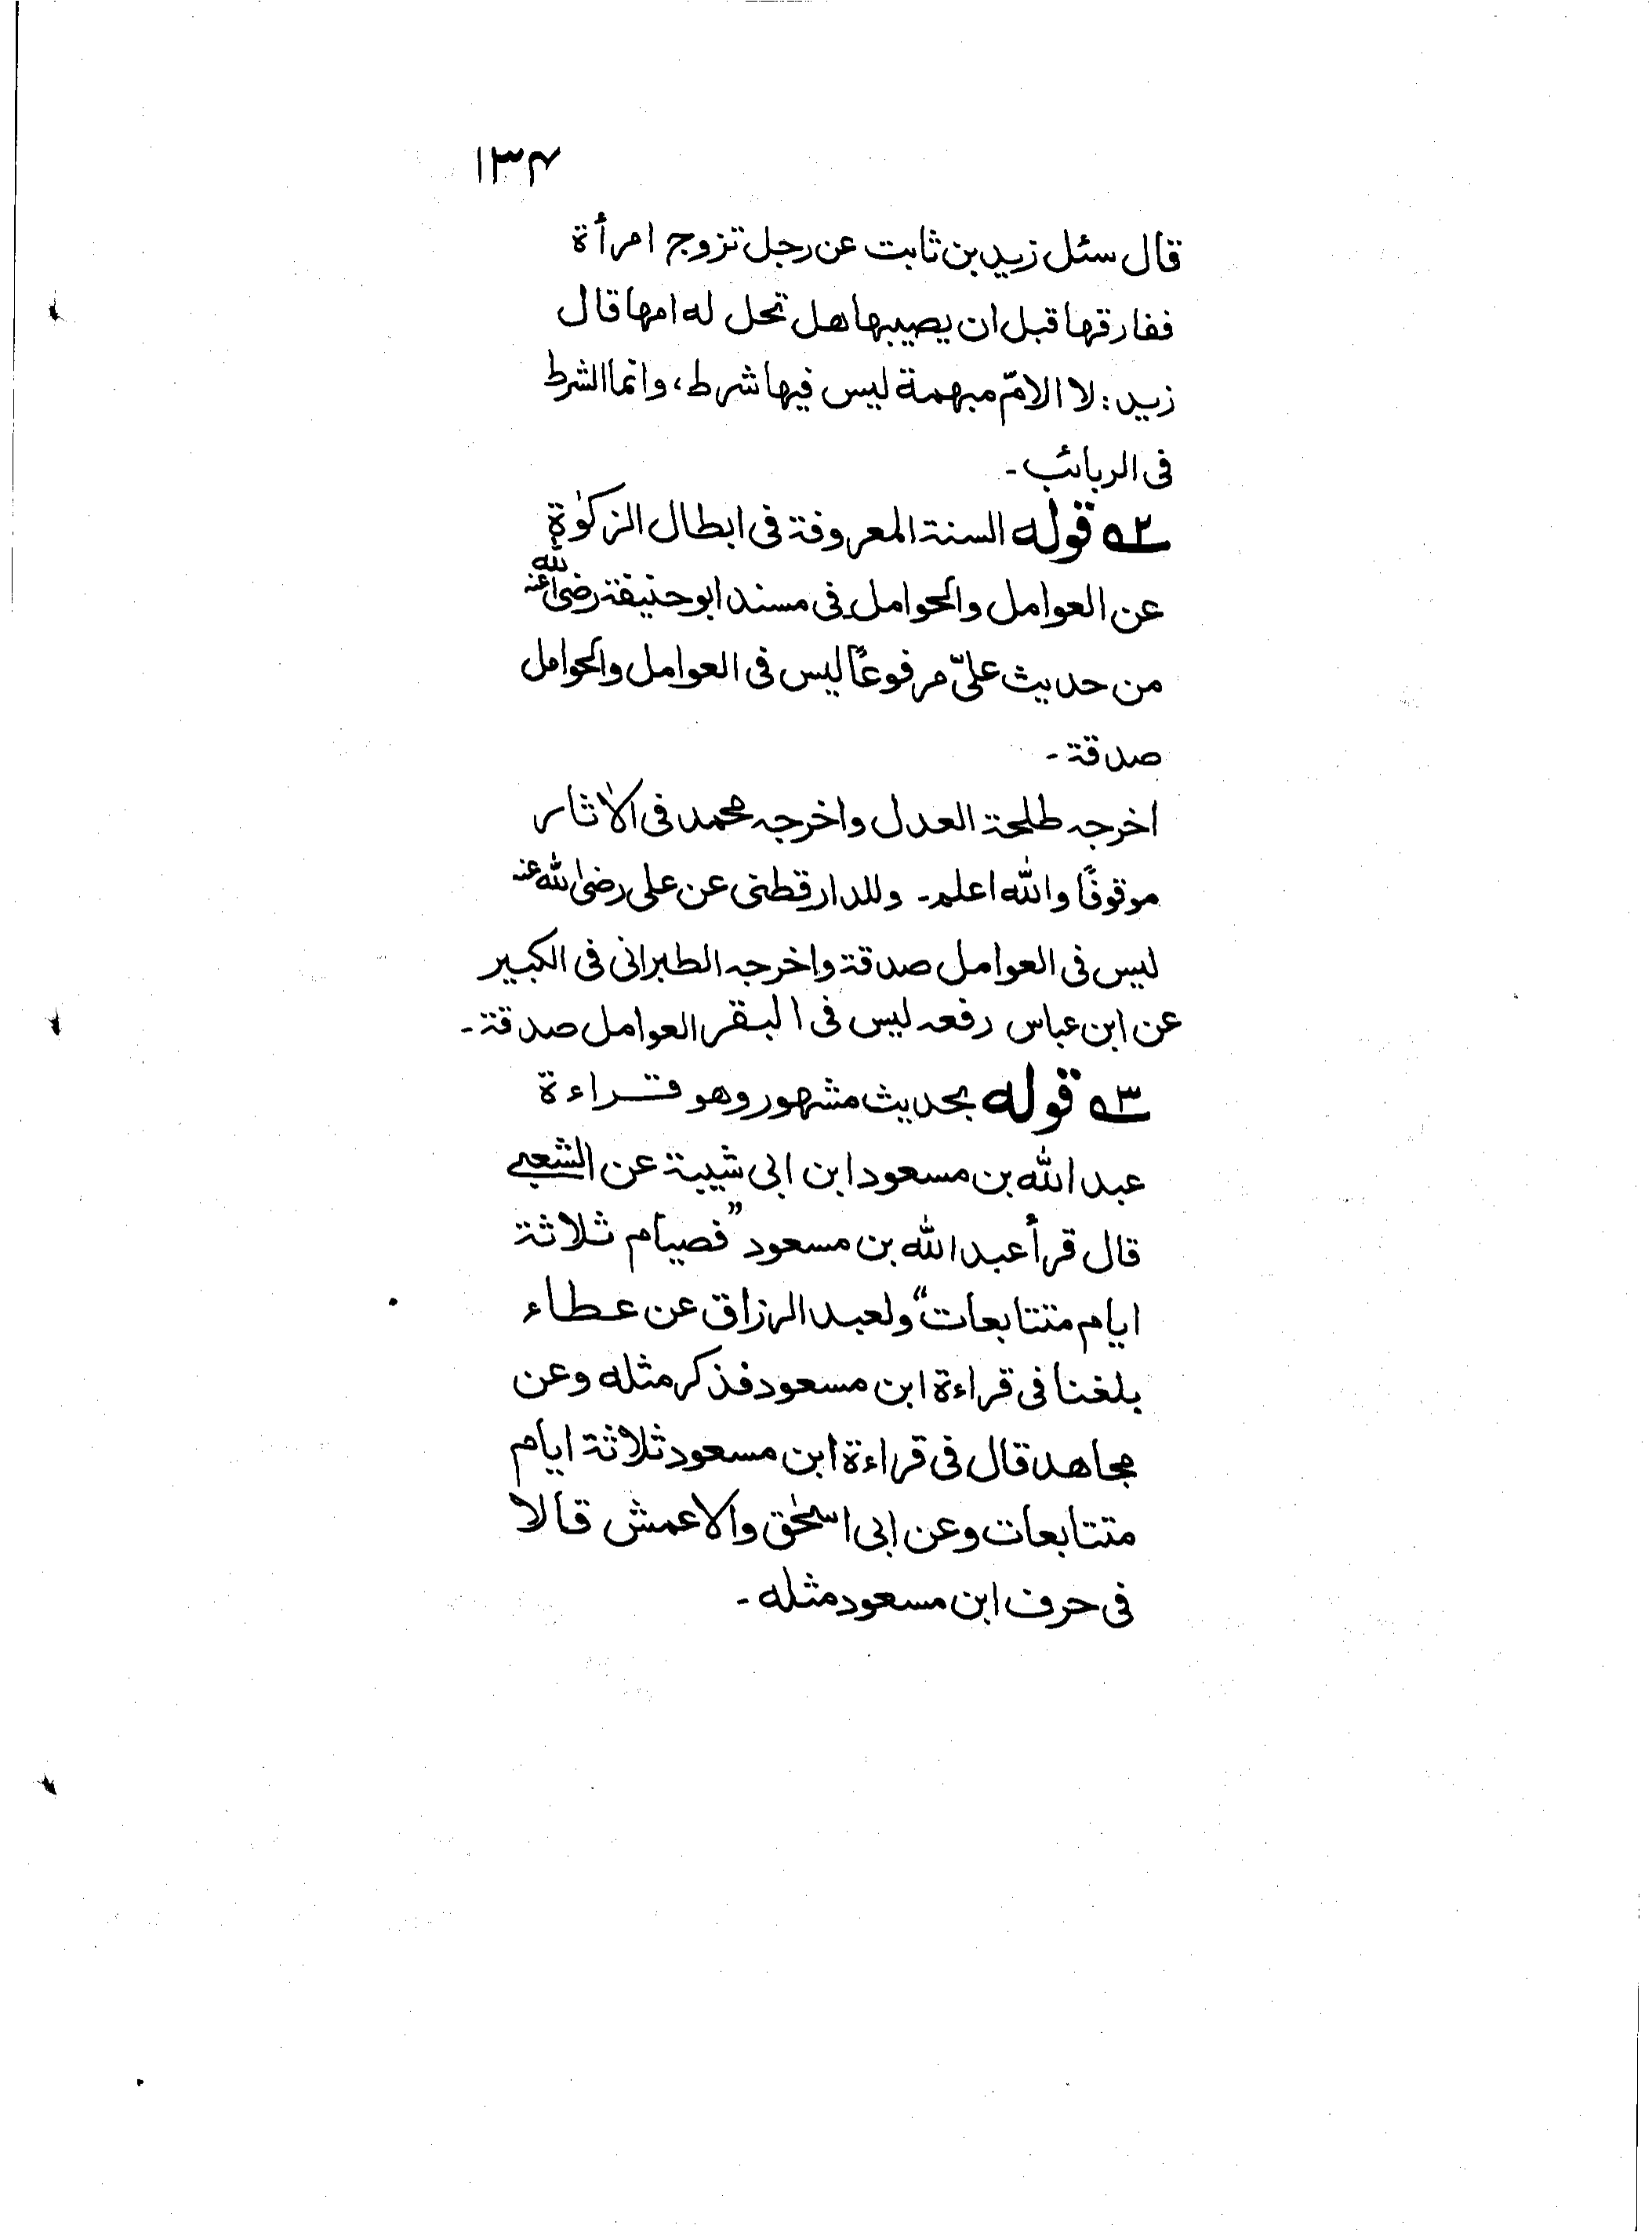 ۱۳۴
قال سئل زيد بن ثابت عن رجل تزوج امرأة
ففارقها قبل ان يصيبها هل تحل له امها قال
زيد: لا الامّ مبهمة ليس فيها شرط، وانما الشرط
فى الربائب -
۵۲ قوله السنة المعروفة فى ابطال الزكوٰة
عن العوامل والحوامل فى مسند ابوحنيفة رضى الله عنه
من حديث علىّ مرفوعًا ليس فى العوامل والحوامل
صدقة -
اخرجه طلحة العدل واخرجه محمد فى الاٰثار
موقوفًا والله اعلم - وللدارقطنى عن على رضى الله عنه
ليس فى العوامل صدقة واخرجه الطبرانى فى الكبير
عن ابن عباس رفعه ليس فى البقر العوامل صدقة -
۵۳ قوله بحديث مشهور وهو قراءة
عبد الله بن مسعود ابن ابى شيبة عن الشعبى
قال قرأ عبد الله بن مسعود ”فصيام ثلاثة
ايام متتابعات“ ولعبد الرزاق عن عطاء
بلغنا فى قراءة ابن مسعود فذكر مثله وعن
مجاهد قال فى قراءة ابن مسعود ثلاثة ايام
متتابعات وعن ابى اسحٰق والاعمش قالا
فى حرف ابن مسعود مثله -